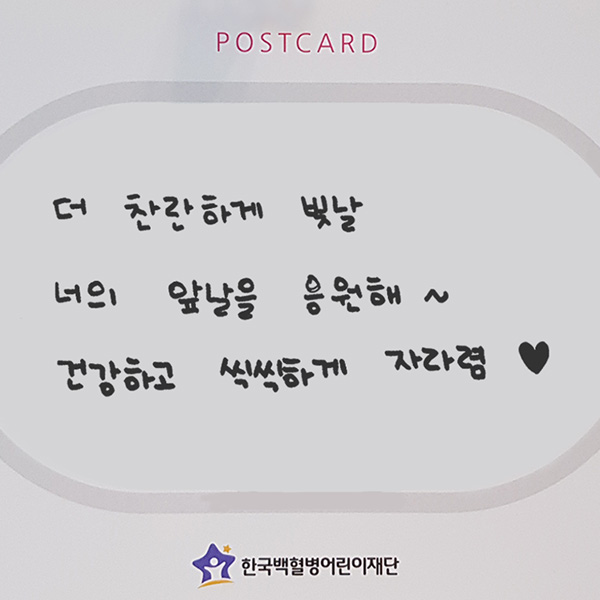 POSTCARD
더 찬란하게 빛날
너의 앞날을 응원해 ~
건강하고 씩씩하게 자라렴 ♥
한국백혈병어린이재단